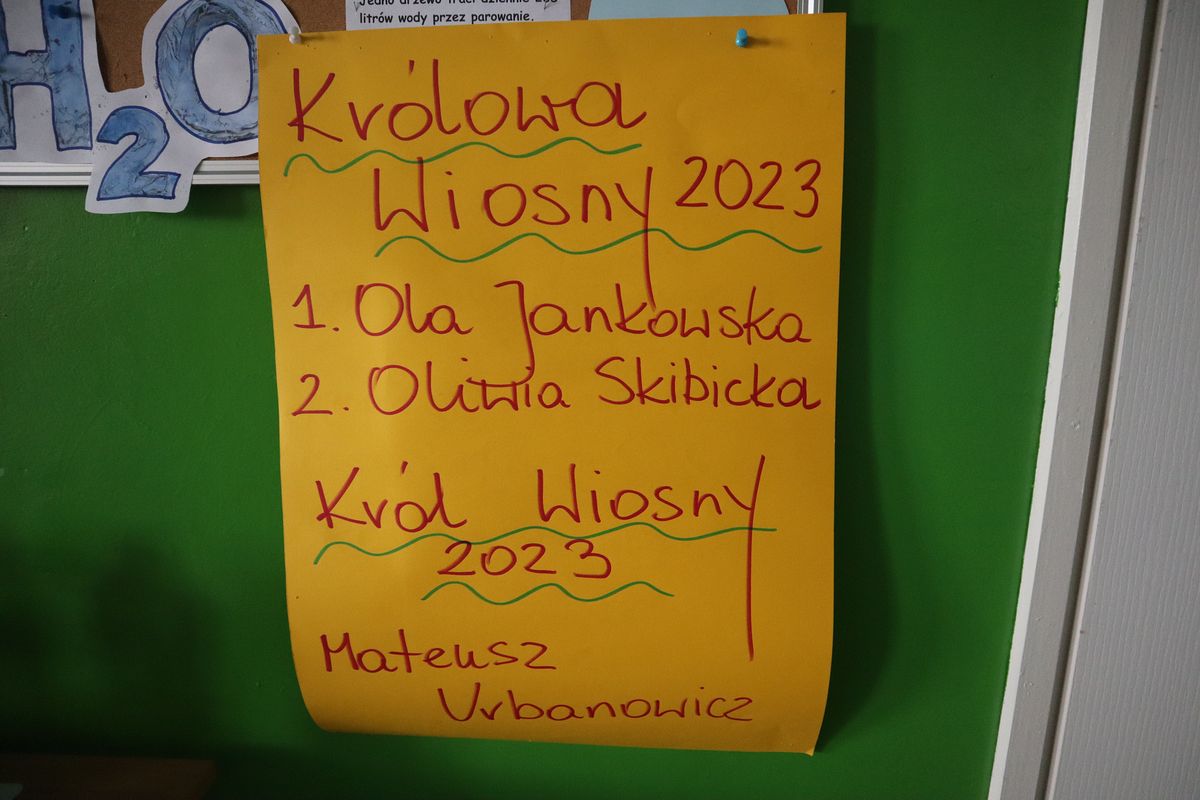 H2O
litrów wody przez parowanie.
Królowa
Wiosny 2023
1. Ola Jankowska
2. Oliwia Skibicka
Król Wiosny
2023
Mateusz
Urbanowicz